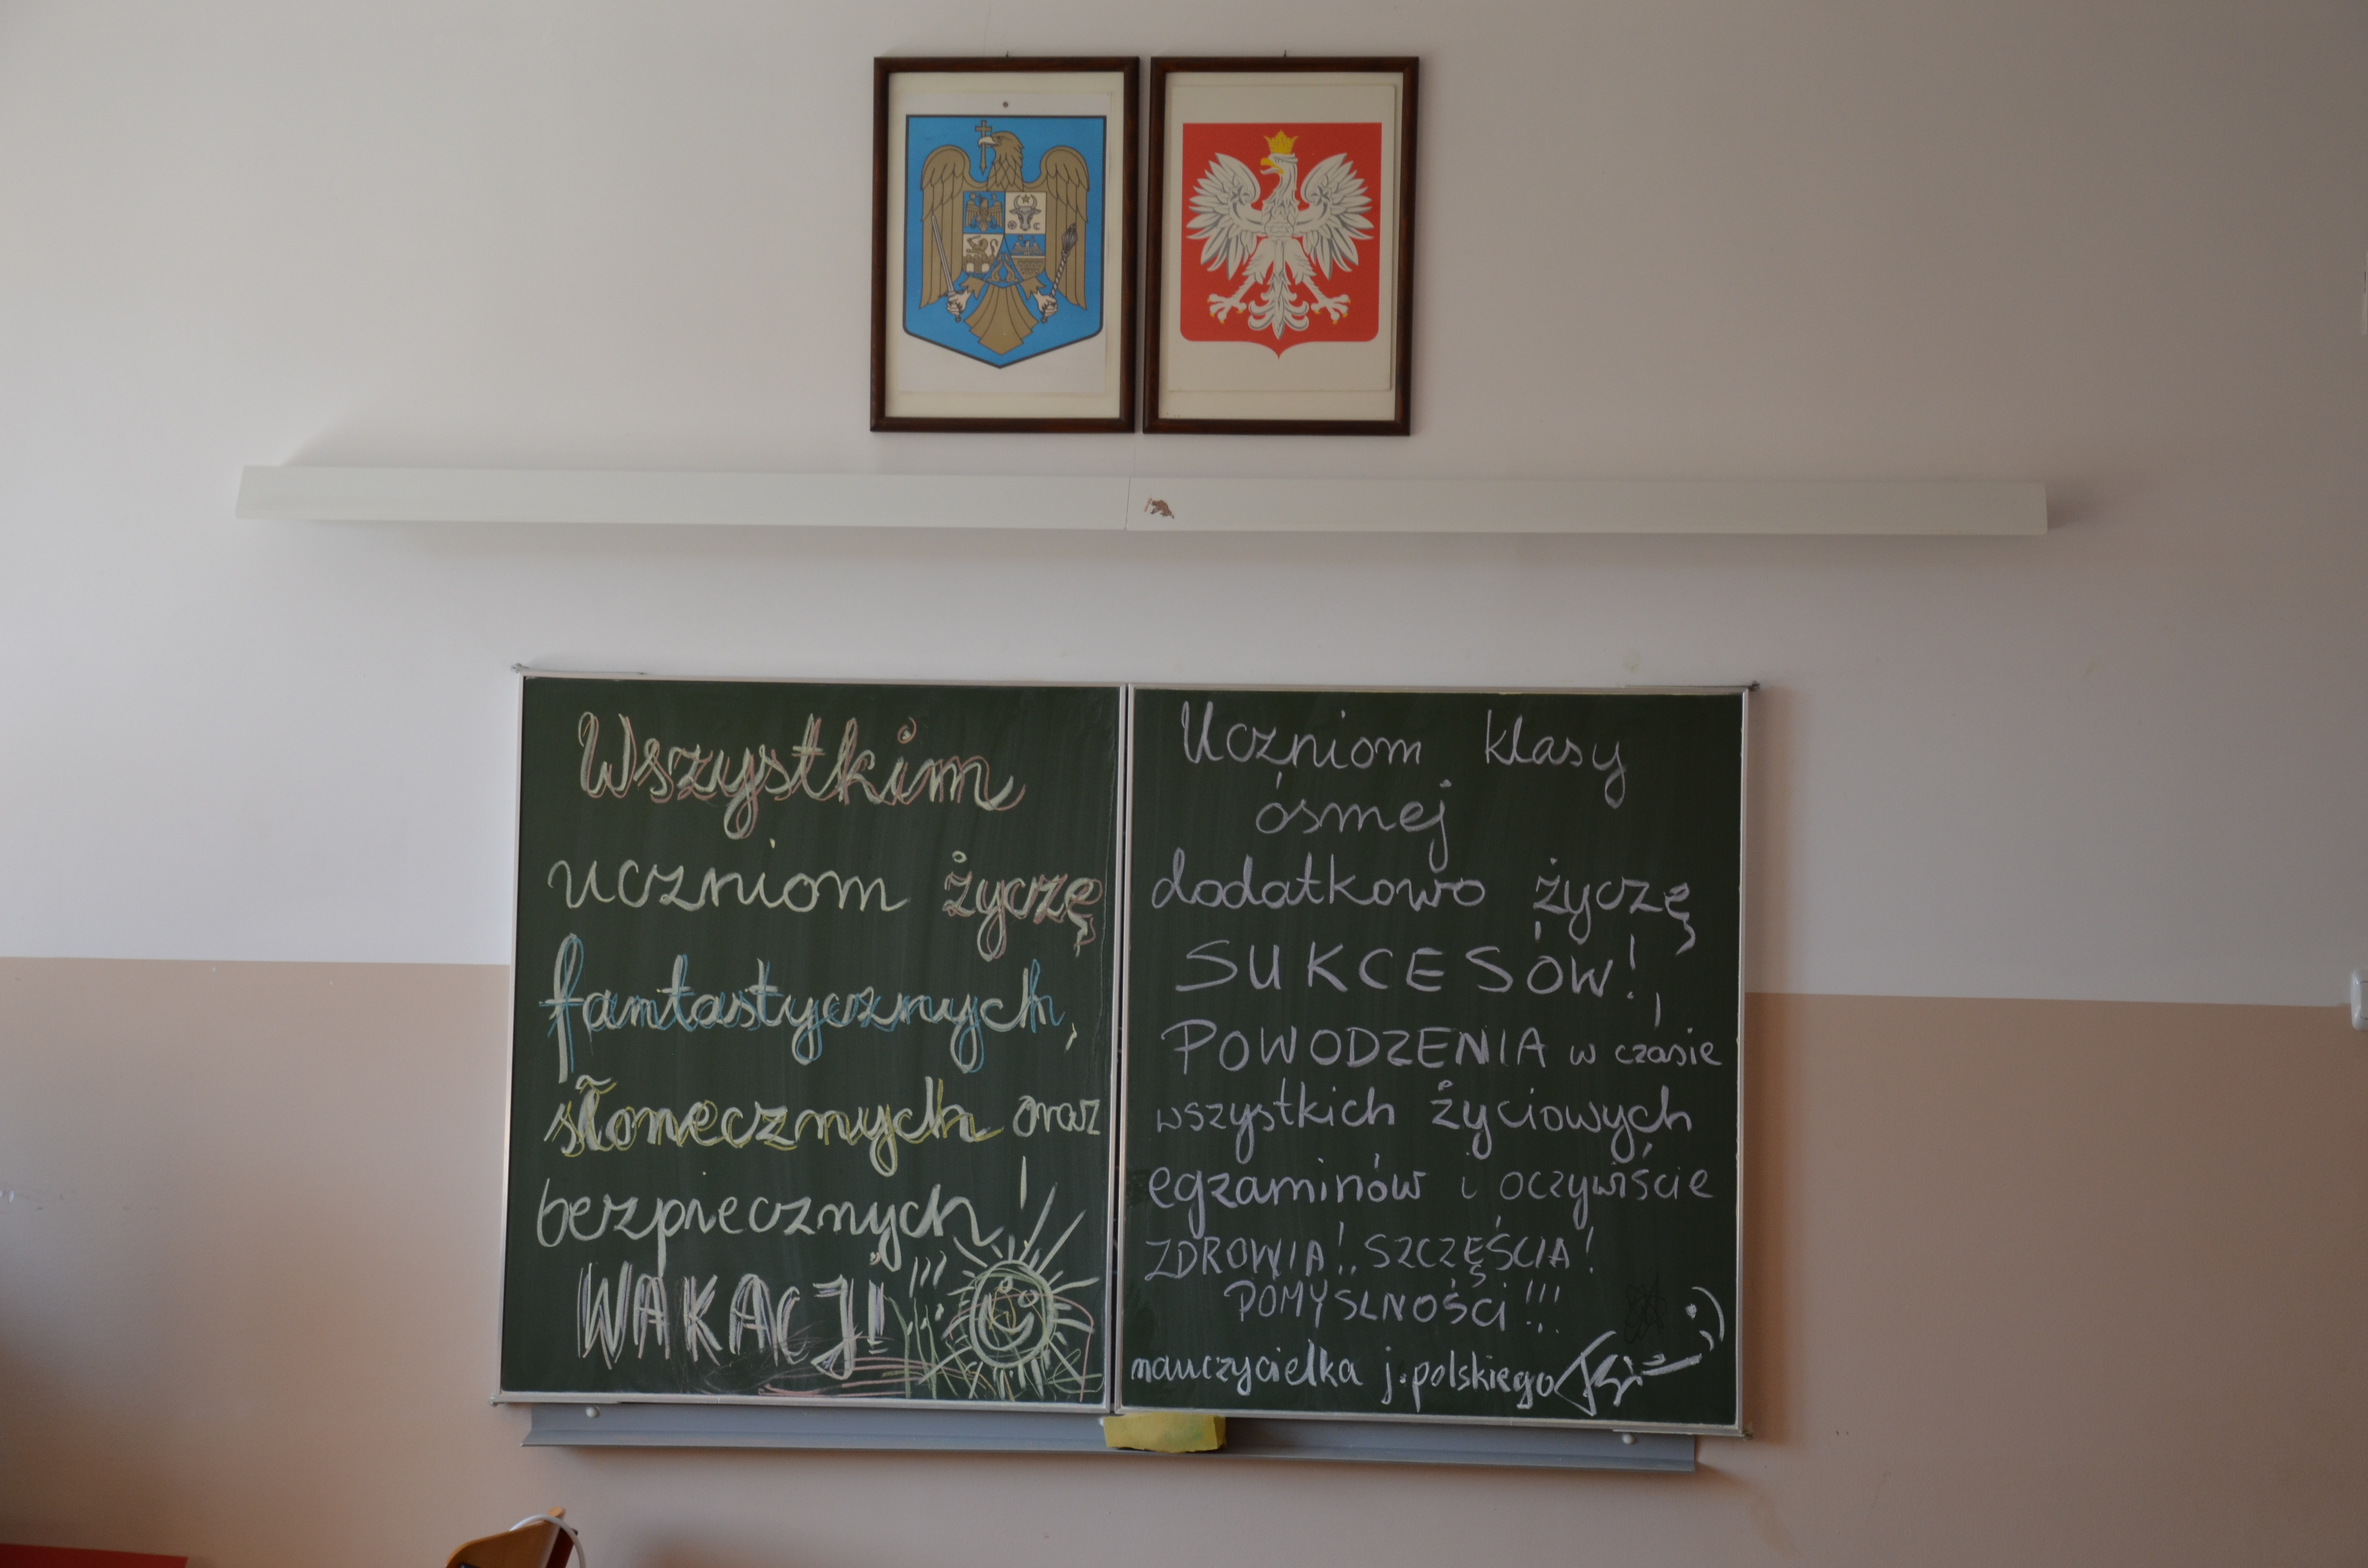 Wszystkim
uczniom życzę
fantastycznych,
słonecznych oraz
bezpiecznych!
WAKACJI!!!!
Uczniom klasy
ósmej
dodatkowo życzę
SUKCESÓW!,
POWODZENIA w czasie
wszystkich życiowych
egzaminów i oczywiście
ZDROWIA!.. SZCZĘŚCIA!
POMYŚLNOŚCI!!!
nauczycielka j. polskiego